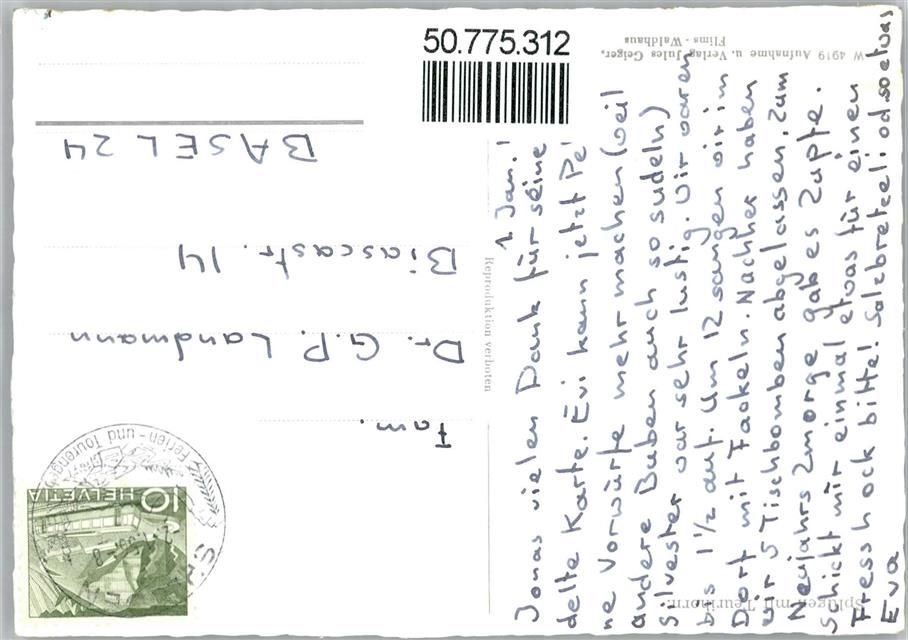 50.775.312
Splügen mit Teurihorn.
W 4919 Aufnahme u. Verlag Jules Geiger,
Flims - Waldhaus
Reproduktion verboten
1 Jan. !
Jonas vielen Dank für seine
delte Karte. Evi kann jetzt Pé
ne Vorwürfe mehr machen (weil
andere Buben auch so sudeln)
Silvester war sehr lustig. Wir waren
bis 1½ auf. Um 12 sangen wir im
Dorf mit Fackeln. Nachher haben
wir 5 Tischbomben abgelassen. Zum
Neujahrs Zmorge gab es Züpfe.
Schickt mir einmal etwas für einen
Fresshock bitte! Salzbretzeli od so etwas
Eva
Fam.
Dr. G.P. Landmann
Biascastr. 14
BASEL 24
HELVETIA
10
Ferien- und Tourengebiet